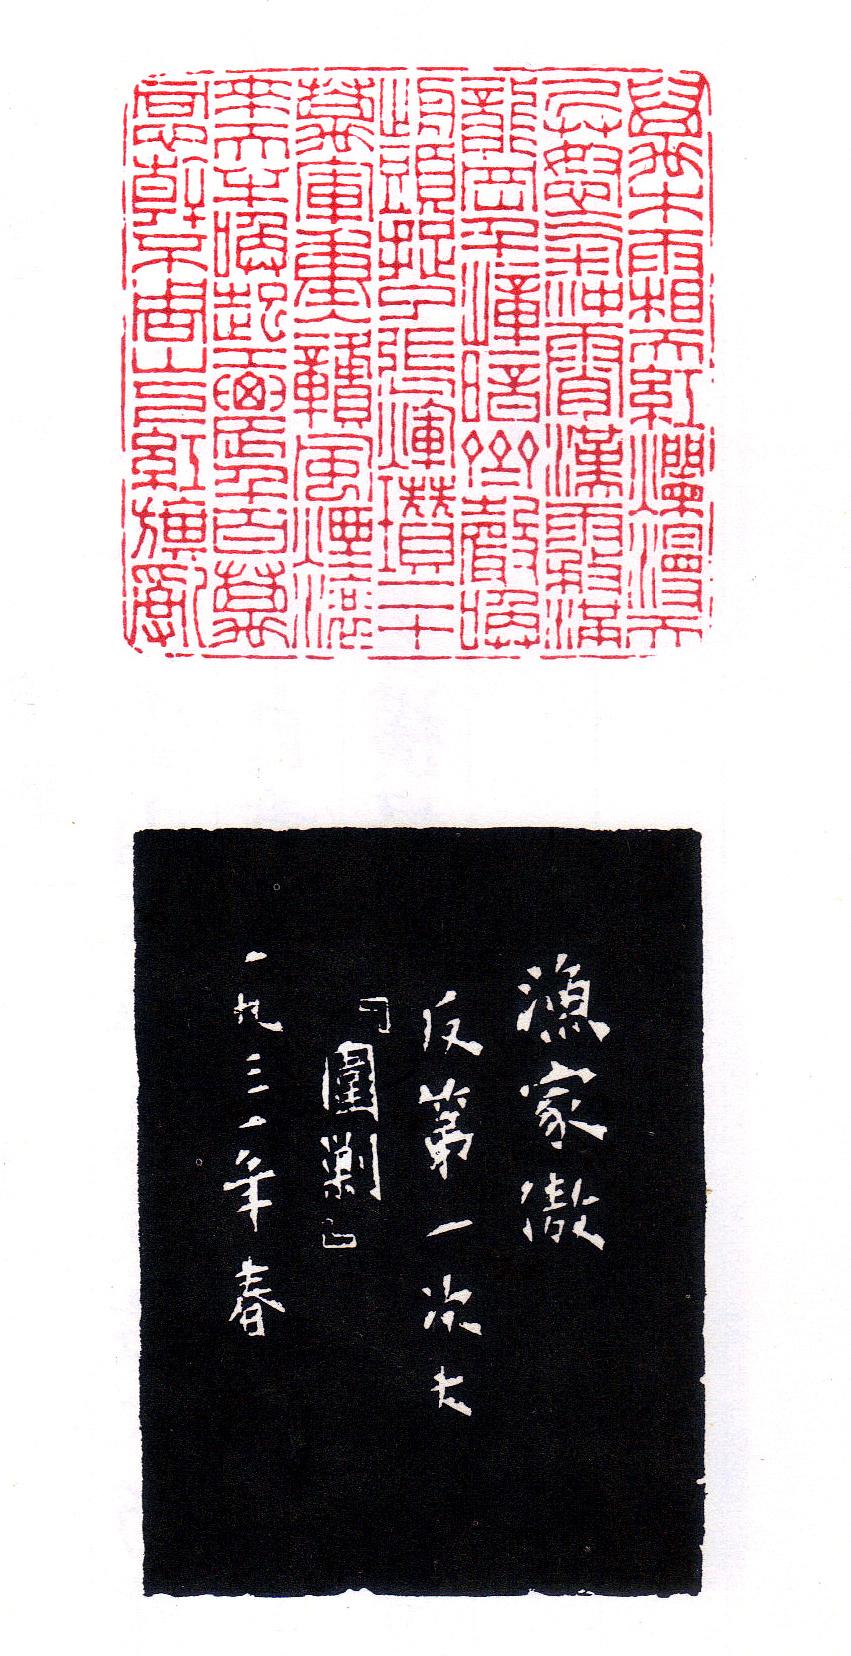 萬木霜天紅爛漫天
兵怒氣沖霄漢霧滿
龍岡千嶂暗齊聲喚
前頭捉了張輝瓚二十
萬軍重入贛風煙滾滾
來天半喚起工農千百萬
同心幹不周山下紅旗亂
漁家傲
反第一次大
『圍剿』
一九三一年春